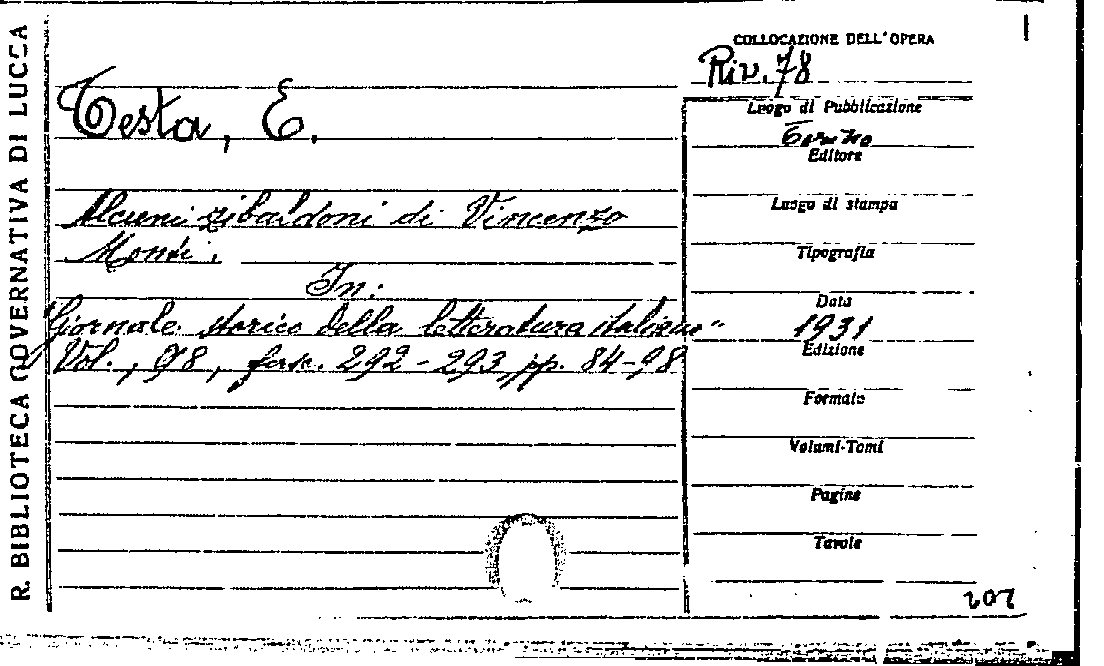 R. BIBLIOTECA GOVERNATIVA DI LUCCA
COLLOCAZIONE DELL'OPERA
Riv. 78
Testa, E.
Alcuni zibaldoni di Vincenzo
Monti.
In:
"Giornale storico della letteratura italiana"
Vol., 98, fasc. 292-293, pp. 84-98
Luogo di Pubblicazione
Torino
Editore
Luogo di stampa
Tipografia
Data
1931
Edizione
Formato
Volumi-Tomi
Pagine
Tavole
207